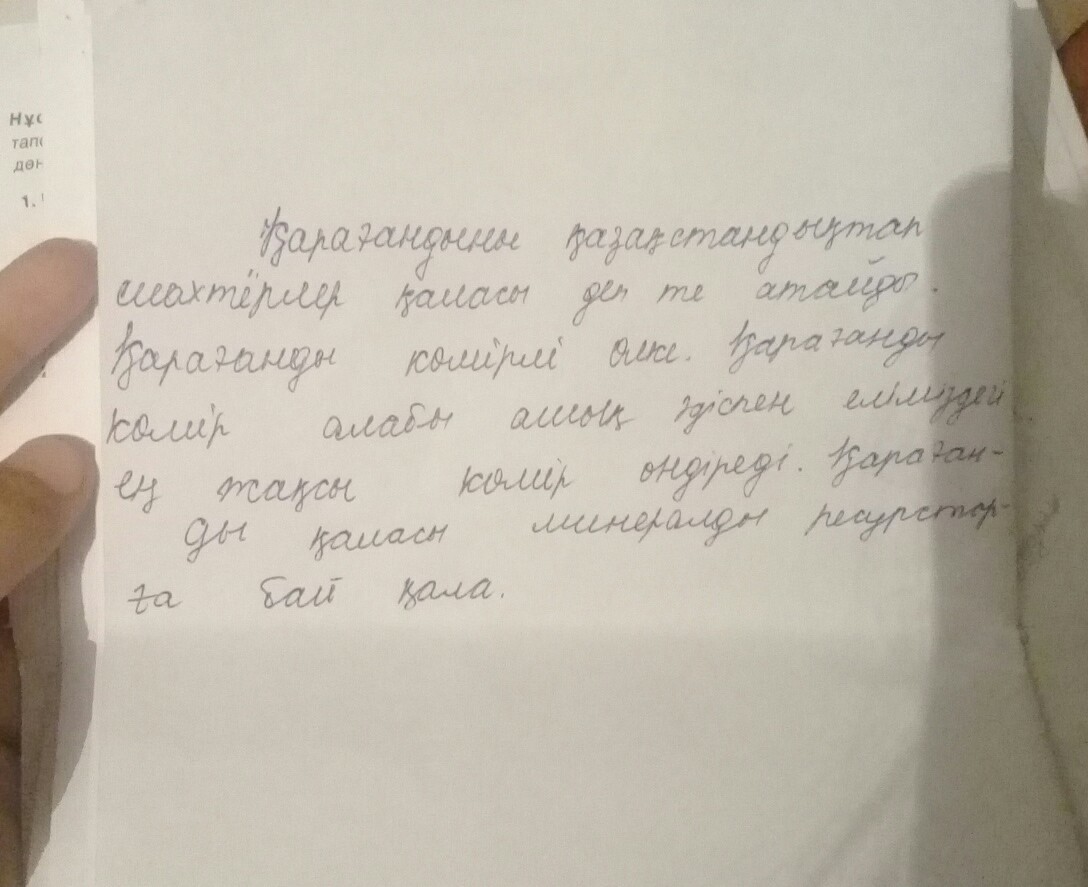 Нұс
тапс
дөн
1.
Қарағандыны қазақстандықтар
шахтёрлер қаласы деп те атайды.
Қарағанды көмірлі өлке. Қарағанды
көмір алабы ашық әдіспен еліміздегі
ең жақсы көмір өндіреді. Қараған-
ды қаласы минералды ресурстар-
ға бай қала.